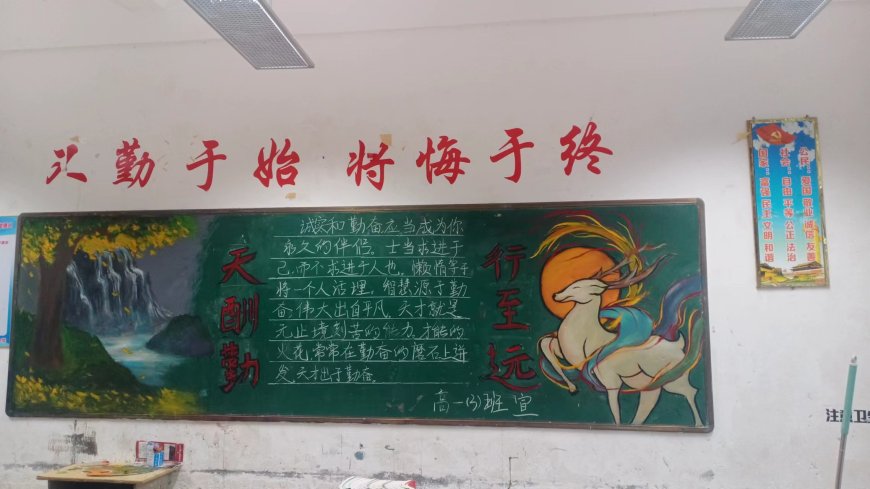 勤于始 将悔于终
天酬勤
诚实和勤奋应当成为你
永久的伴侣。士当求进于
己,而不求进于人也。懒惰等于
将一个人活埋。智慧源于勤
奋,伟大出自平凡。天才就是
无止境刻苦的能力,才能的
火花,常常在勤奋的磨石上迸
发。天才出于勤奋。
高一(3)班 宣
行至远
公民:爱国 敬业 诚信 友善
社会:自由 平等 公正 法治
国家:富强 民主 文明 和谐
注意卫